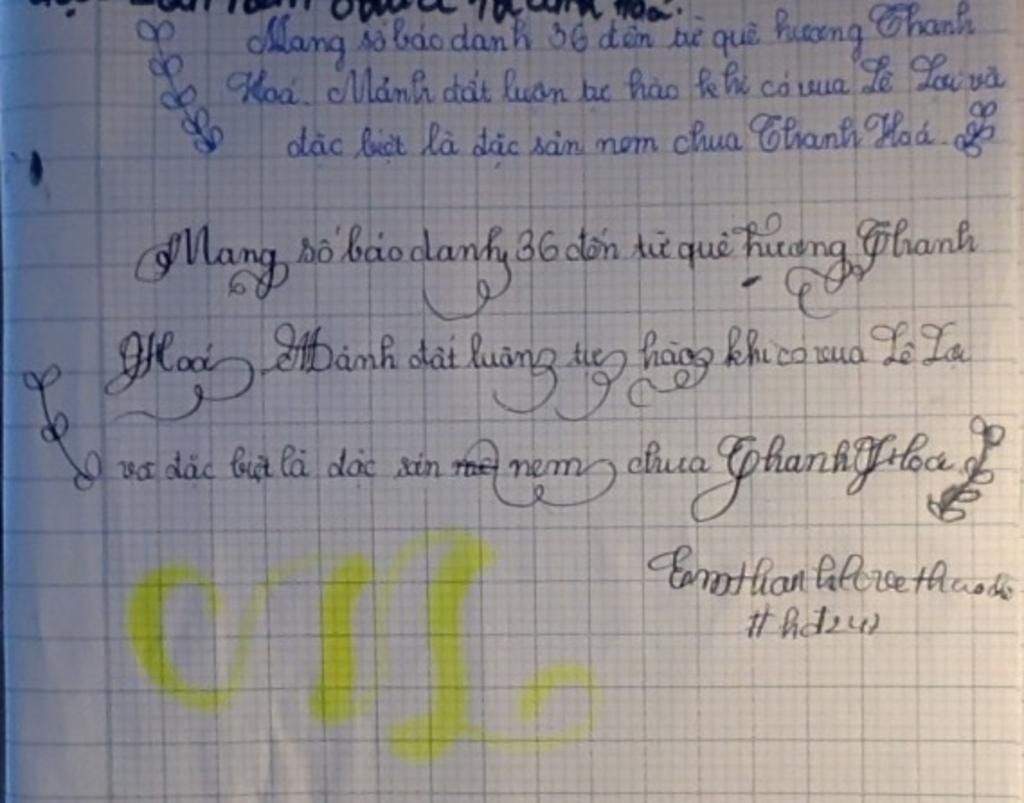 Mang số báo danh 36 đến từ quê hương Thanh
Hoá. Mảnh đất luôn tự hào khi có vua Lê Lợi và
đặc biệt là đặc sản nem chua Thanh Hoá.
Mang số báo danh 36 đến từ quê hương Thanh
Hoá. Mảnh đất luông tự hào khi có vua Lê Lợi
và đặc biệt là đặc sản nem chua Thanh Hoá
# hd242
M